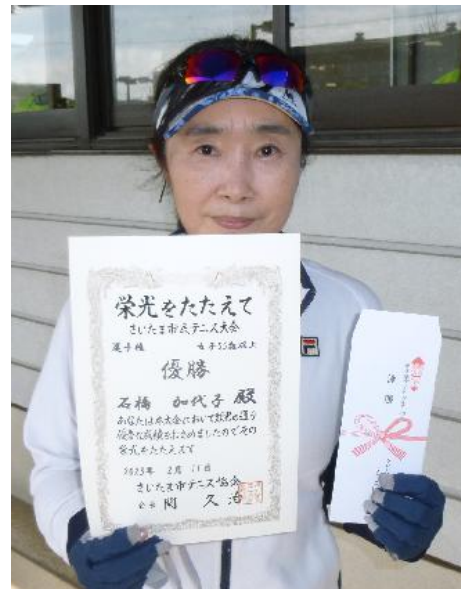 栄光をたたえて
さいたま市民テニス大会
選手権 女子55歳以上
優勝
石橋 加代子 殿
あなたは本大会において頭書の通り
優秀な成績をおさめましたのでその
栄光をたたえます
2023年 2月 15日
さいたま市テニス協会
会長 関 久治
優勝